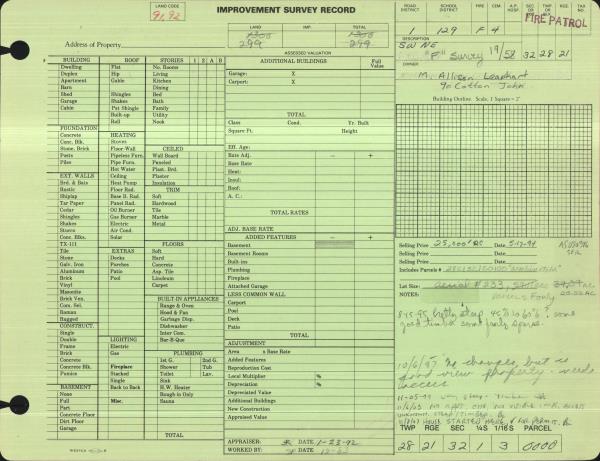 LAND CODE
91, 92
IMPROVEMENT SURVEY RECORD
LAND IMP. TOTAL
1300 1300
299 299
ASSESSED VALUATION
Address of Property
ROAD DISTRICT SCHOOL DISTRICT FIRE CEM. A.P. HOSP. SEC TWP RGE
1 129 F 4 FIRE PATROL
DESCRIPTION
SW NE
"F" Survey 19/58 32 28 21
OWNER
M. Allison Leaphart
% Cotton John
Building Outline. Scale, 1 Square = 2'
BUILDING ROOF STORIES 1 2 A B
Dwelling Flat No. Rooms
Duplex Hip Living
Apartment Gable Kitchen
Barn Dining
Shed Shingles Bed
Garage Shakes Bath
Cabin Pat Shingle Family
Built-up Utility
Roll Nook
FOUNDATION
Concrete HEATING
Conc. Blk. Stoves CEILED
Stone, Brick Floor-Wall Wall Board
Posts Pipeless Furn. Paneled
Piles Pipe Furn. Plast. Brd.
Hot Water Plaster
EXT. WALLS Ceiling Insulation
Brd. & Bats Heat Pump TRIM
Rustic Floor Rad. Soft
Shiplap Base B. Rad. Hardwood
Tar Paper Panel Rad. Tile
Cedar Oil Burner Marble
Shingles Gas Burner Metal
Shakes Electric
Stucco Air Cond. FLOORS
Conc. Blks. Solar Soft
TX-111 Hard
Tile EXTRAS Concrete
Stone Decks Asp. Tile
Galv. Iron Porches Linoleum
Aluminum Patio Carpet
Brick Pool
Vinyl
Masonite
Brick Ven. BUILT-IN APPLIANCES
Com. Sel. Range & Oven
Roman Hood & Fan
Rugged Garbage Disp.
CONSTRUCT. Dishwasher
Single Inter Com.
Double LIGHTING Bar-B-Que
Frame Electric
Brick Gas PLUMBING
Concrete 1st G. 2nd G.
Concrete Blk. Fireplace Shower Tub
Pumice Stacked Toilet Lav.
Single Sink
BASEMENT Double H.W. Heater
None Rough-in Only
Full Misc. Sauna
Part
Concrete Floor
Dirt Floor
Garage TOTAL
ADDITIONAL BUILDINGS Full Value
Garage: X
Carport: X
TOTAL
Class Cond. Yr. Built
Square Ft. Height
Eff. Age:
Rate Adj. − +
Base Rate
Heat:
Insul:
Roof:
A. C.:
TOTAL RATES
ADJ. BASE RATE
ADDED FEATURES − +
Basement
Basement Rooms
Built-ins
Plumbing
Fireplace
Attached Garage
LESS COMMON WALL
Carport
Pool
Deck
Patio
TOTAL
ADJUSTMENT
Area x Base Rate
Added Features
Reproduction Cost
Local Multiplier %
Depreciation %
Depreciated Value
Additional Buildings
New Construction
Appraised Value
APPRAISER: DATE 1-23-92
WORKED BY DATE
Selling Price 25,500 Date 5-17-94
Selling Price Date
Includes Parcels #
Lot Size:
NOTES:
8-95 Hilly steep 45° to 60°; some
good timber some fairly sparse.
10/6/97 No changes, but is
good view property - needs
access
TWP RGE SEC ¼S 1/16 S PARCEL
28 21 32 1 3 0000